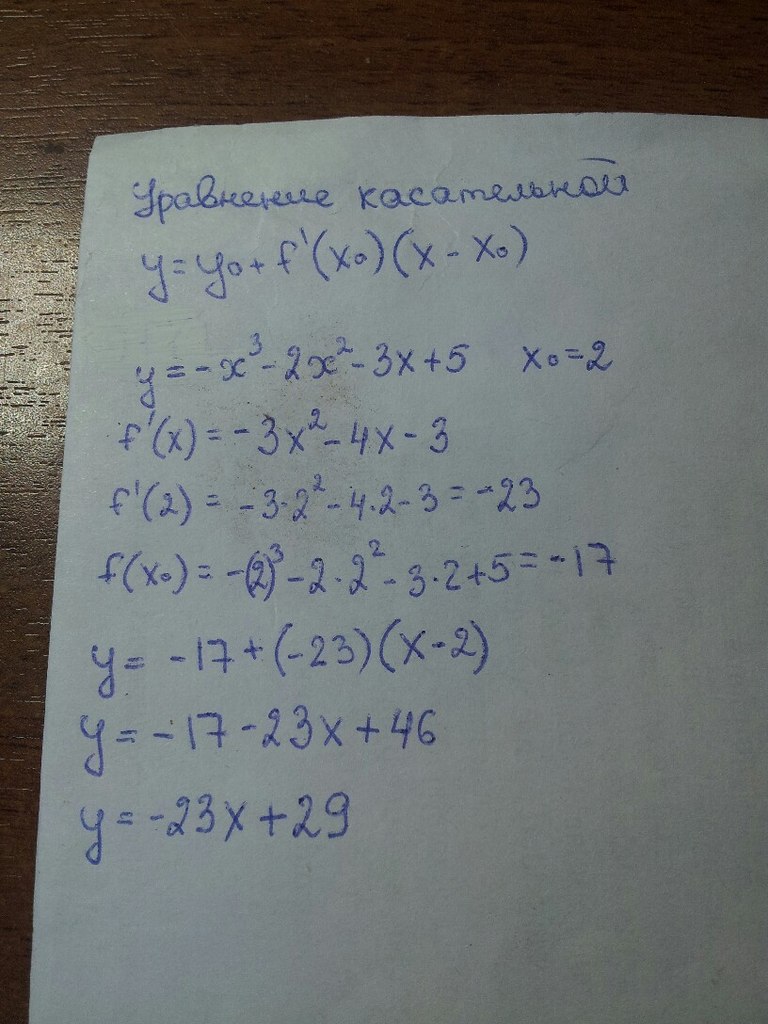 Уравнение касательной
y = y₀ + f'(x₀)(x - x₀)
y = -x³ - 2x² - 3x + 5 x₀ = 2
f'(x) = -3x² - 4x - 3
f'(2) = -3·2² - 4·2 - 3 = -23
f(x₀) = -(2)³ - 2·2² - 3·2 + 5 = -17
y = -17 + (-23)(x - 2)
y = -17 - 23x + 46
y = -23x + 29